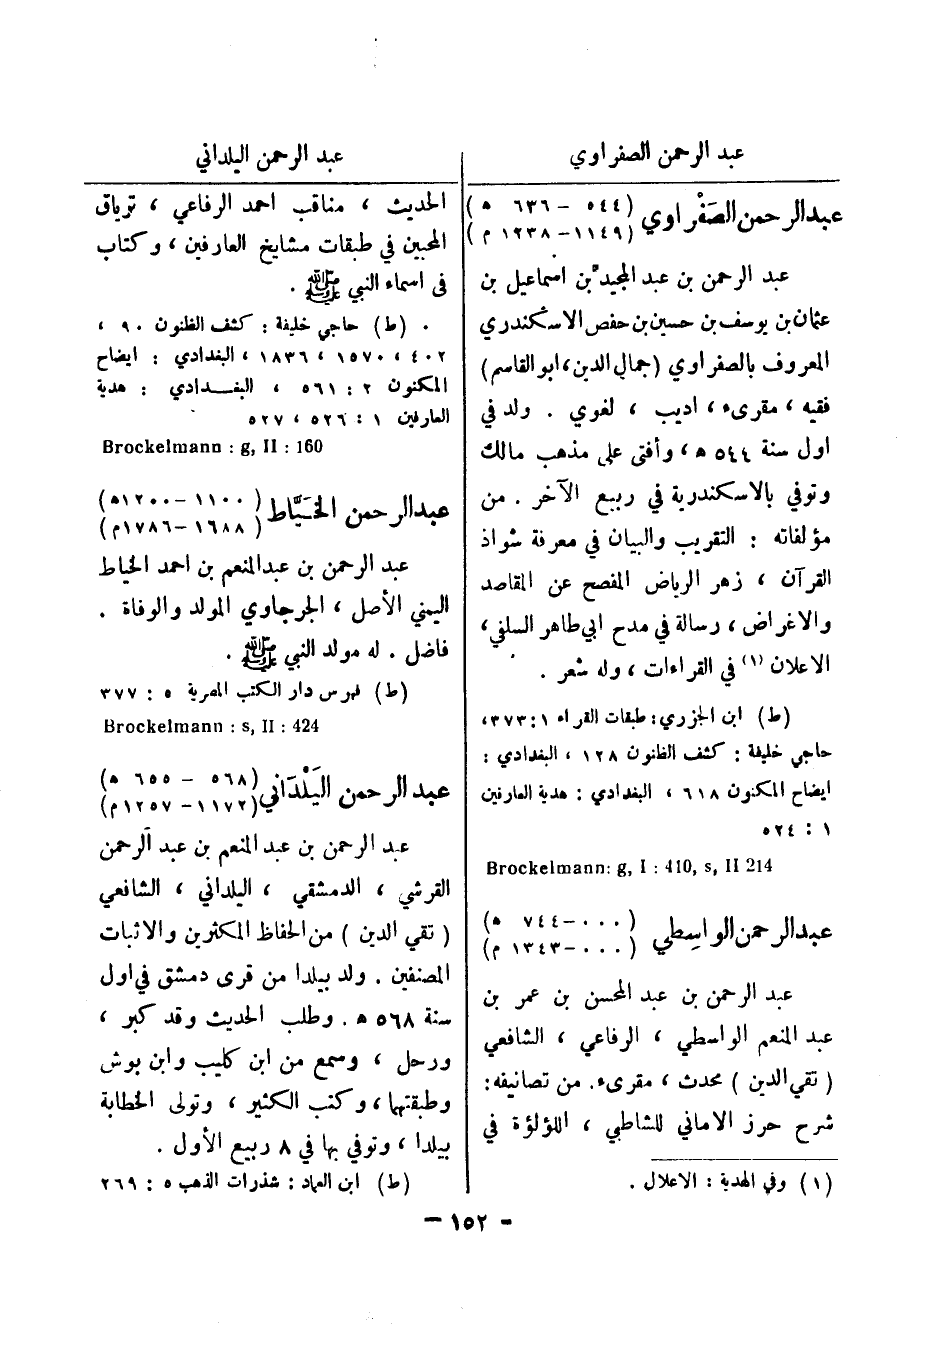 عبد الرحمن الصفراوي
عبد الرحمن الصَفْراوي (٥٤٤ - ٦٣٦ ه)
(١١٤٩-١٢٣٨ م)
عبد الرحمن بن عبد المجيد بن اسماعيل بن
عثمان بن يوسف بن حسين بن حفص الاسكندري
المعروف بالصفراوي (جمال الدين، ابو القاسم)
فقيه ، مقرىء ، اديب ، لغوي . ولد في
اول سنة ٥٤٤ ه، وأفتى على مذهب مالك
وتوفي بالاسكندرية في ربيع الآخر . من
مؤلفاته : التقريب والبيان في معرفة شواذ
القرآن ، زهر الرياض المفصح عن المقاصد
والاغراض ، رسالة في مدح ابي طاهر السلفي ،
الاعلان (١) في القراءات ، وله شعر .
(ط) ابن الجزري : طبقات القراء ١ : ٣٧٣،
حاجي خليفة : كشف الظنون ١٢٨ ، البغدادي :
ايضاح المكنون ٦١٨ ، البغدادي : هدية العارفين
١ : ٥٢٤
Brockelmann: g, I : 410, s, II 214
عبد الرحمن الواسِطي (٠٠٠-٧٤٤ ه)
(٠٠٠-١٣٤٣ م)
عبد الرحمن بن عبد المحسن بن عمر بن
عبد المنعم الواسطي ، الرفاعي ، الشافعي
( تقي الدين ) محدث ، مقرىء. من تصانيفه:
شرح حرز الاماني للشاطي ، اللؤلؤة في
(١) وفي الهدية : الاعلال .
عبد الرحمن اليلداني
الحديث ، مناقب احمد الرفاعي ، ترياق
المحبين في طبقات مشايخ العارفين ، وكتاب
في اسماء النبي ﷺ .
(ط) حاجي خليفة : كشف الظنون ٩٠ ،
٤٠٢ ، ١٥٧٠ ، ١٨٣٦ ، البغدادي : ايضاح
المكنون ٢ : ٥٦١ ، البغدادي : هدية
العارفين ١ : ٥٢٦ ، ٥٢٧
Brockelmann : g, II : 160
عبد الرحمن الخَيَّاط (١١٠٠-١٢٠٠ه)
(١٦٨٨-١٧٨٦م)
عبد الرحمن بن عبد المنعم بن احمد الخياط
اليمني الأصل ، الجرجاوي المولد والوفاة .
فاضل . له مولد النبي ﷺ .
(ط) فهرس دار الكتب المصرية ٥ : ٣٧٧
Brockelmann : s, II : 424
عبد الرحمن اليَلْدَاني (٥٦٨ - ٦٥٥ ه)
(١١٧٢-١٢٥٧م)
عبد الرحمن بن عبد المنعم بن عبد الرحمن
القرشي ، الدمشقي ، اليلداني ، الشافعي
( تقي الدين ) من الحفاظ المكثرين والاثبات
المصنفين . ولد بيلدا من قرى دمشق في اول
سنة ٥٦٨ ه. وطلب الحديث وقد كبر ،
ورحل ، وسمع من ابن كليب وابن بوش
وطبقتهما، وكتب الكثير ، وتولى الخطابة
بيلدا ، وتوفي بها في ٨ ربيع الأول .
(ط) ابن العماد : شذرات الذهب ٥ : ٢٦٩
- ١٥٢ -